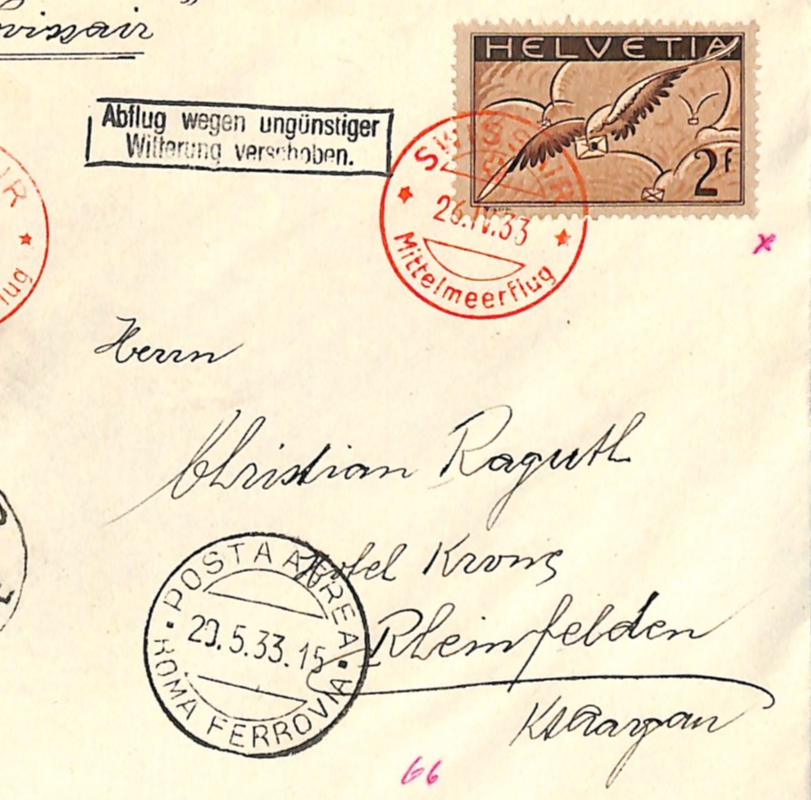 HELVETIA
2 f
Abflug wegen ungünstiger
Witterung verschoben.
SWISSAIR
26.IV.33
Mittelmeerflug
lug
x
Herrn
Christian Raguth
Hotel Krone
Rheinfelden
Kt Aargau
POSTA AEREA
29.5.33.15
ROMA FERROVIA
66